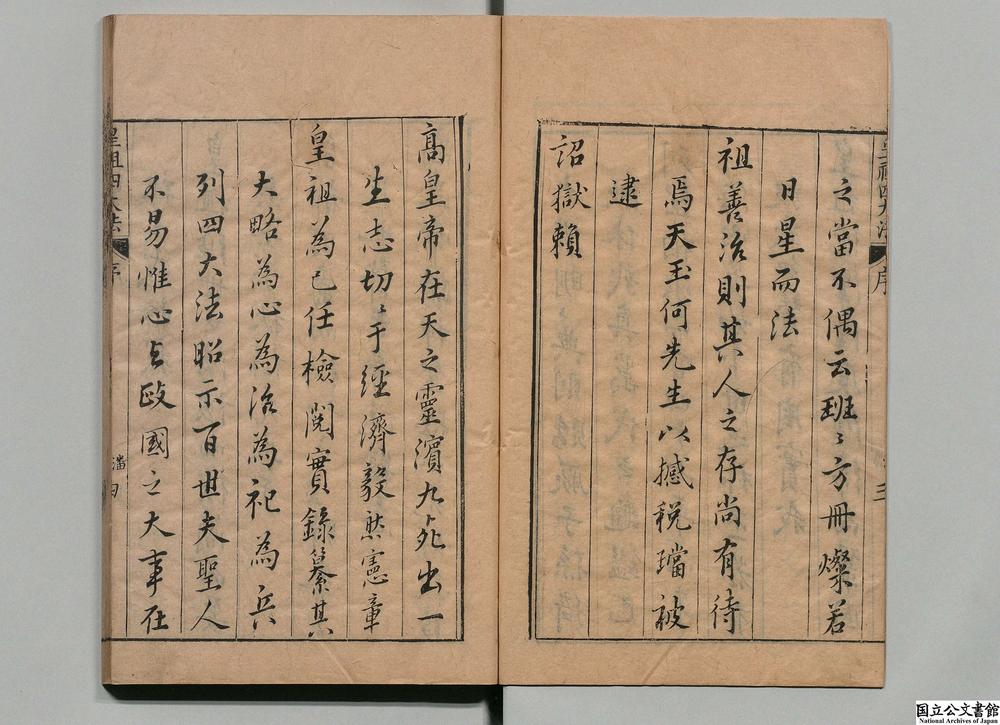 之當不偶云班〻方冊燦若
日星而法
祖善治則其人之存尚有待
焉天玉何先生以撼税璫被
逮
詔獄賴
高皇帝在天之靈濵九死出一
生志切〻于經濟毅然憲章
皇祖為己任檢閱實錄纂其
大略為心為治為祀為兵
列四大法昭示百世夫聖人
不易惟心與政國之大事在
皇祖四大法
序
三
皇祖四大法
序
潘
四
国立公文書館
National Archives of Japan